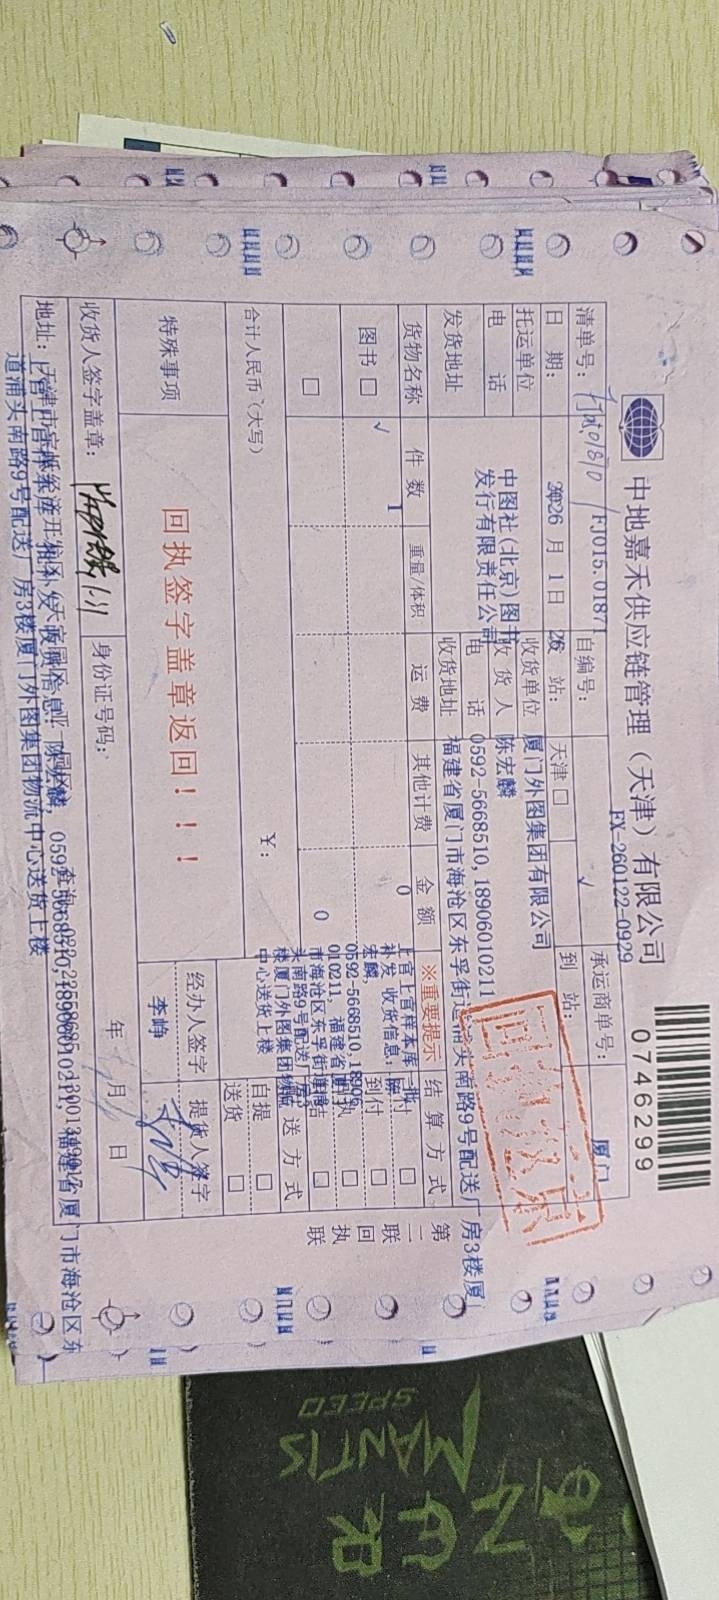 中地嘉禾供应链管理（天津）有限公司
FX-260122-0929
0746299
清单号：
FJ015.0187
自编号：
承运商单号：
日 期：
2026 月 1日 26
站：
天津 □
√
到 站：
厦门
托运单位
中图社(北京)图书发行有限责任公司
收货单位
厦门外图集团有限公司
电 话
收 货 人
陈宏麟
电 话
0592-5668510,18906010211
发货地址
收货地址
福建省厦门市海沧区东孚街道浦头南路9号配送厂房3楼厦
货物名称
件 数
重量/体积
运 费
其他计费
金 额
※重要提示
结 算 方 式
图书 □
√
1
0
上官上官样本库一批
补发 收货信息：陈
宏麟,
0592-5668510,18906
010211, 福建省厦门
市海沧区东孚街道浦
头南路9号配送厂房3
楼厦门外图集团物流
中心送货上楼
付 □
到付 □
回执 □
□
□
0
送 方 式
合计人民币（大写）
￥：
自提 □
送货 □
特殊事项
回执签字盖章返回！！！
经办人签字
提货人签字
李峥
收货人签字盖章：
1-31
身份证号码：
年 月 日
地址：天津市
道浦头南路9号配送厂房3楼厦门外图集团物流中心送货上楼
0592-5668510,18906010211, 福建省厦门市海沧区东
第二联 回执联
MANTIS
SPEED